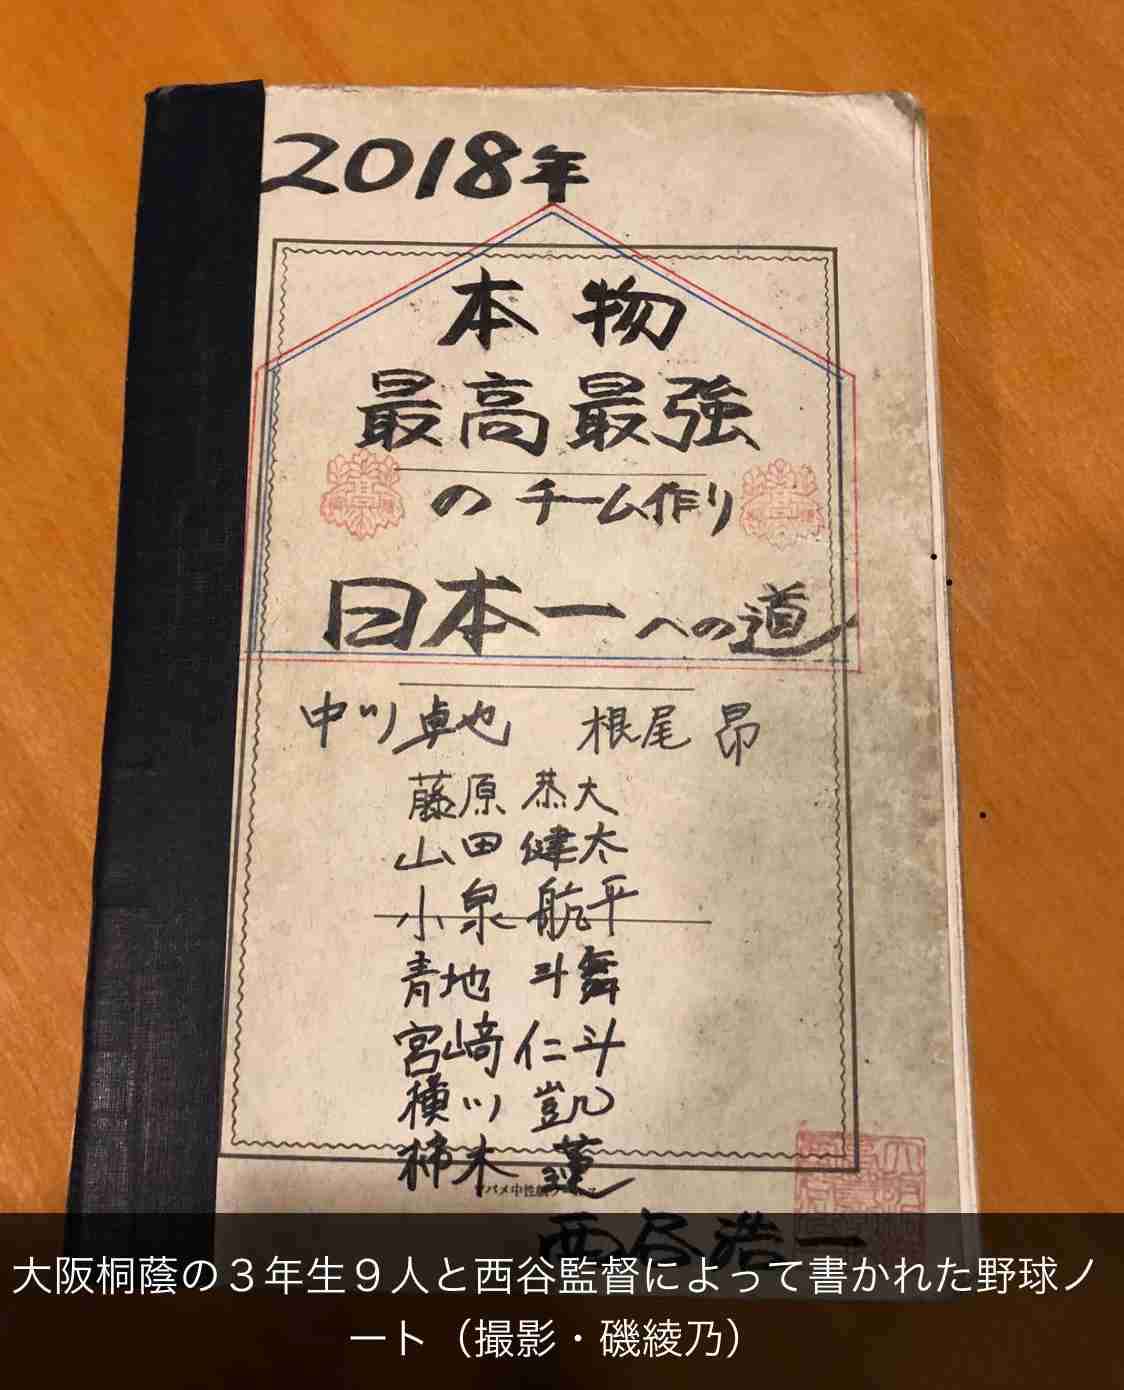 2018年
本物
最高最強
のチーム作り
日本一への道
中川卓也 根尾昂
藤原恭大
山田健太
小泉航平
青地斗舞
宮﨑仁斗
横川凱
柿木蓮
西谷浩一
大阪桐蔭の３年生９人と西谷監督によって書かれた野球ノ
ート（撮影・磯綾乃）